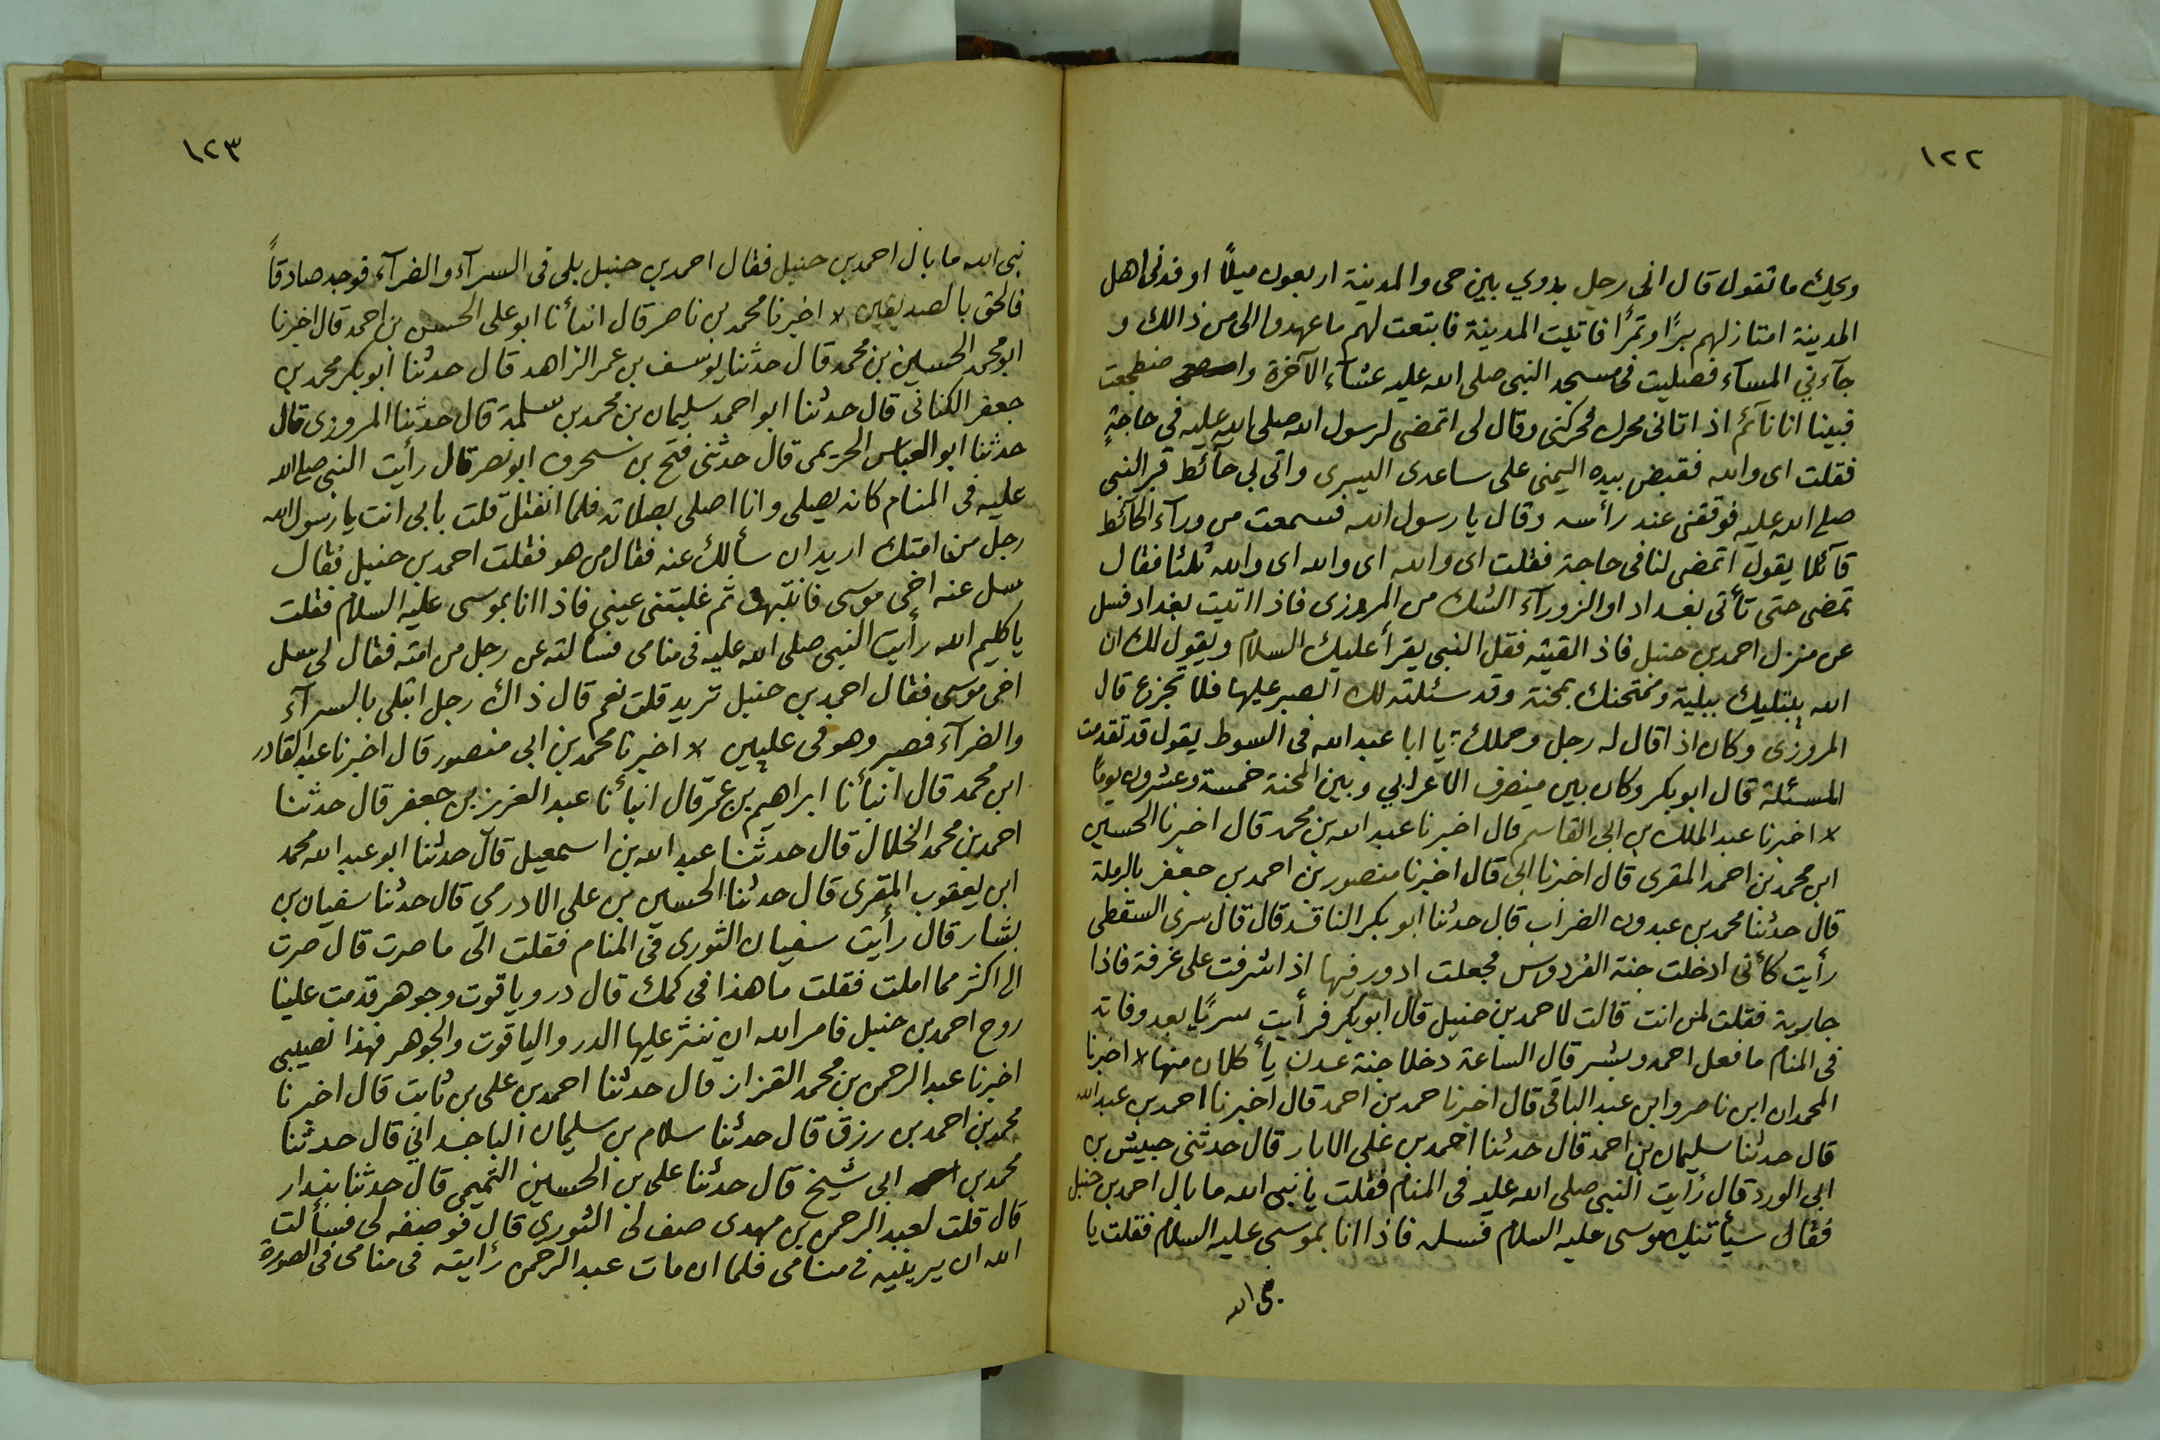 ١٢٢
ويحك ما تقول قال انى رجل بدوي بين حى والمدينة اربعون ميلًا اوفدنى اهل
المدينة امتار لهم برًا وتمرًا فاتيت المدينة فابتعت لهم ما عهدوا الى من ذالك و
جآءني المسآء فصليت فى مسجد النبى صلى الله عليه عشآء الآخرة واضطجعت
فبينا انا نآئم اذ اتانى محرك فحركنى وقال لى اتمضى لرسول الله صلى الله عليه في حاجةٍ
فقلت اى والله فقبض بيده اليمنى على ساعدى اليسرى واتى بى حآئط قبر النبي
صلى الله عليه فوقفنى عند رأسه وقال يا رسول الله فسمعت من ورآء الحآئط
قآئلا يقول اتمضى لنا فى حاجة فقلت اى والله اى والله اى والله ثلثا فقال
تمضى حتى تأتى بغداد او الزورآء الشك من المروزى فاذا اتيت بغداد فسل
عن منزل احمد بن حنبل فاذا لقيته فقل النبى يقرأ عليك السلام ويقول لك ان
الله يبتليك ببلية وممتحنك بمحنة وقد سئلته لك الصبر عليها فلا تجزع قال
المروزى وكان اذا قال له رجل وحملك يا ابا عبد الله فى السوط يقول قد تقدمت
المسئلة قال ابو بكر وكان بين منصرف الاعرابي وبين المحنة خمسة وعشرون يومًا
اخبرنا عبد الملك بن ابى القاسم قال اخبرنا عبد الله بن محمد قال اخبرنا الحسين
ابن محمد بن احمد المقرى قال اخبرنا ابى قال اخبرنا منصور بن احمد بن جعفر بالرملة
قال حدثنا محمد بن عبدون الضراب قال حدثنا ابو بكر الناقد قال قال سرى السقطى
رأيت كأنى ادخلت جنة الفردوس فجعلت ادور فيها اذ اشرفت على غرفة فاذا
جارية فقلت لمن انت قالت لاحمد بن حنبل قال ابو بكر فرأيت سريًا بعد وفاته
فى المنام ما فعل احمد وبشر قال الساعة دخلا جنة عدن يأكلان منها اخبرنا
المحمدان ابن ناصر وابن عبد الباقى قال اخبرنا حمد بن احمد قال اخبرنا احمد بن عبد الله
قال حدثنا سليمان بن احمد قال حدثنا احمد بن على الابار قال حدثنى حبيش بن
ابى الورد قال رأيت النبى صلى الله عليه فى المنام فقلت يا نبى الله ما بال احمد بن حنبل
فقال سيأتيك موسى عليه السلام فسله فاذا انا بموسى عليه السلام فقلت يا
نبى الله
١٢٣
نبى الله ما بال احمد بن حنبل فقال احمد بن حنبل بلى فى السرآء والضرآء فوجد صادقًا
فالحق بالصديقين اخبرنا محمد بن ناصر قال انبأنا ابو على الحسن بن احمد قال اخبرنا
ابو محمد الحسين بن محمد قال حدثنا يوسف بن عمر الزاهد قال حدثنا ابو بكر محمد بن
جعفر الكنانى قال حدثنا ابو احمد سليمان بن محمد بن سلمة قال حدثنا المروزى قال
حدثنا ابو العباس الحريمى قال حدثنى فتح بن شحرف ابو نصر قال رأيت النبي صلى الله
عليه فى المنام كانه يصلى وانا اصلى بصلاته فلما انفتل قلت بابى انت يا رسول الله
رجل من امتك اريد ان سألك عنه فقال من هو فقلت احمد بن حنبل فقال
سل عنه اخى موسى فانتبهت ثم غلبتنى عيني فاذا انا بموسى عليه السلام فقلت
يا كليم الله رأيت النبى صلى الله عليه فى منامى فسالته عن رجل من امته فقال لى سل
اخى موسى فقال احمد بن حنبل تريد قلت نعم قال ذاك رجل ابتلى بالسرآء
والضرآء فصبر وهو فى عليين اخبرنا محمد بن ابى منصور قال اخبرنا عبد القادر
ابن محمد قال انبأنا ابراهيم بن عمر قال انبأنا عبد العزيز بن جعفر قال حدثنا
احمد بن محمد الخلال قال حدثنا عبد الله بن اسمعيل قال حدثنا ابو عبد الله محمد
ابن يعقوب المقرى قال حدثنا الحسين بن على الادرمي قال حدثنا سفيان بن
بشار قال رأيت سفيان الثورى فى المنام فقلت الى ما صرت قال صرت
الى اكثر مما املت فقلت ما هذا فى كمك قال در وياقوت وجوهر قدمت علينا
روح احمد بن حنبل فامر الله ان ينثر عليها الدر والياقوت والجوهر فهذا نصيبى
اخبرنا عبد الرحمن بن محمد القزاز قال حدثنا احمد بن على بن ثابت قال اخبرنا
محمد بن احمد بن رزق قال حدثنا سلام بن سليمان الباجدانى قال حدثنا
محمد بن ابى شيخ قال حدثنا على بن الحسين التميمى قال حدثنا بندار
قال قلت لعبد الرحمن بن مهدى صف لى الثورى قال فوصفه لى فسألت
الله ان يرينيه فى منامى فلما ان مات عبد الرحمن رأيته فى منامى فى الصورة